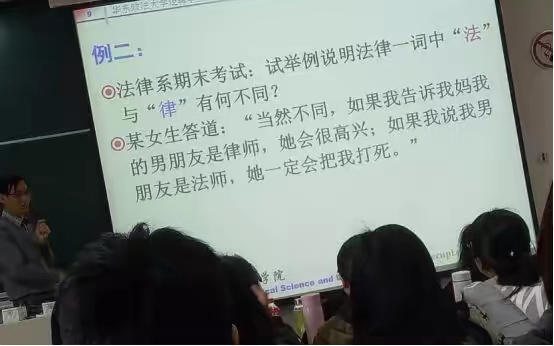 9 华东政法大学
例二：
法律系期末考试：试举例说明法律一词中“法”
与“律”有何不同？
某女生答道：“当然不同，如果我告诉我妈我
的男朋友是律师，她会很高兴；如果我说我男
朋友是法师，她一定会把我打死。”
学院
cal Science and